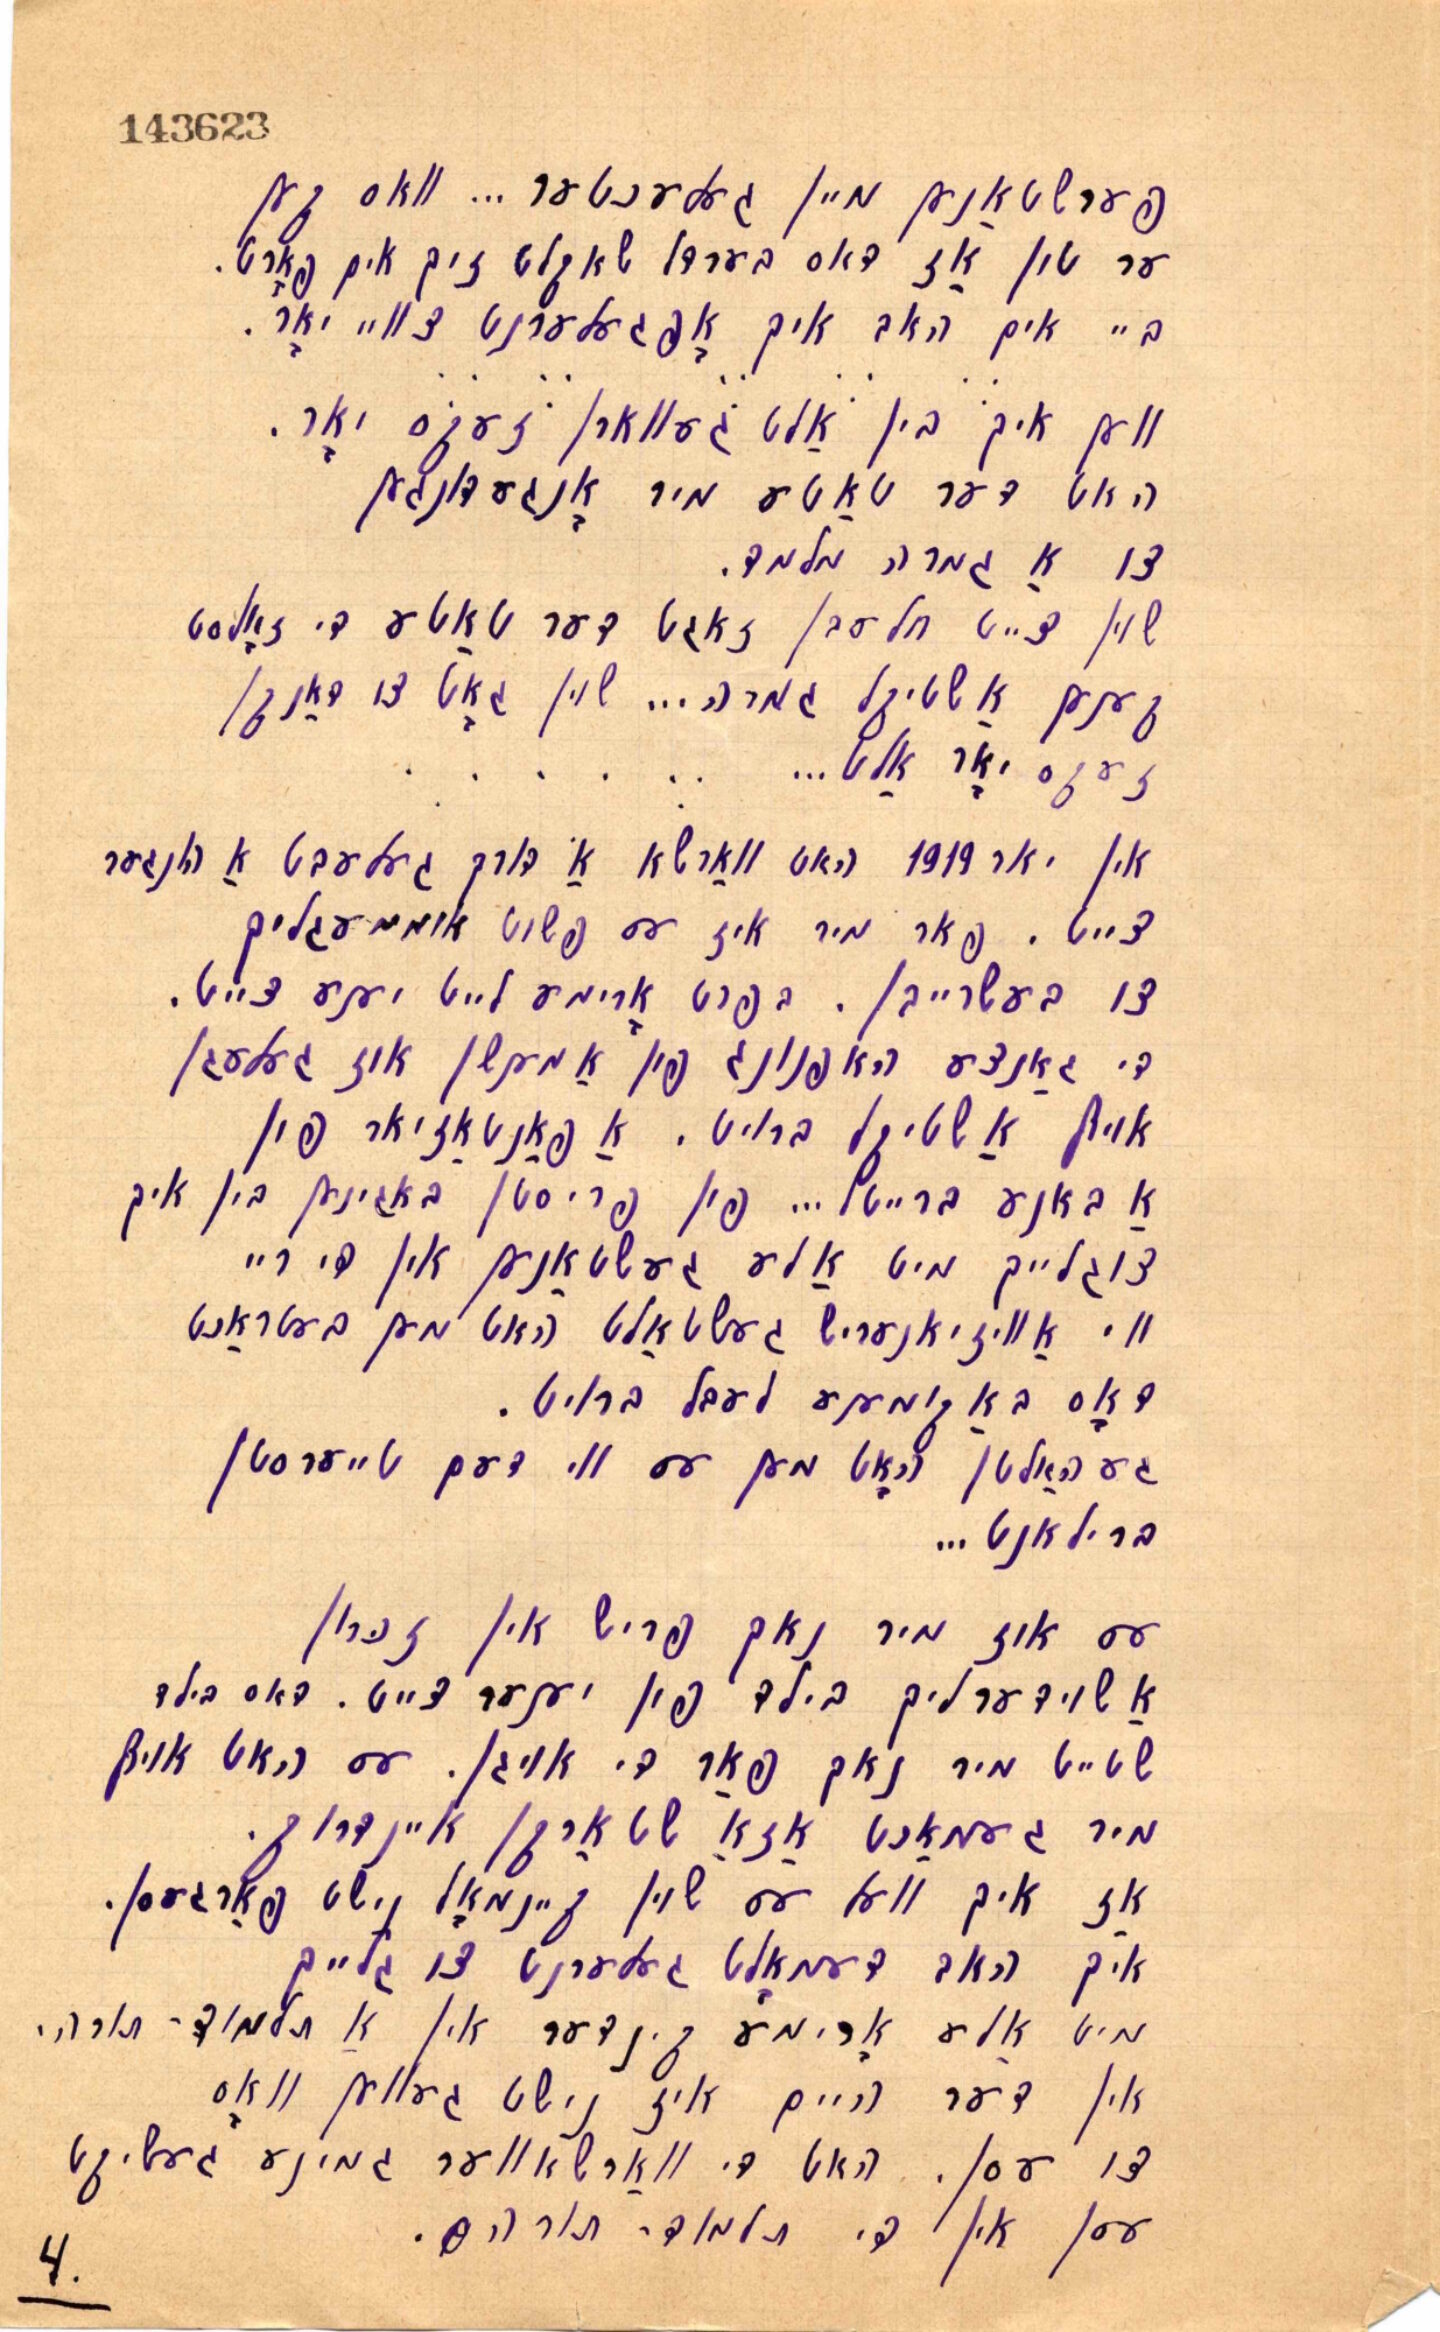 143623
פערשטאַנען מיין געלעכטער... וואס קען
ער טון אַז דאס בערדל שאקלט זיך אים פאָרט.
ביי אים האב איך אָפגעלערנט צוויי יאָר.
ווען איך בין אַלט געווארן זעקס יאָר.
האט דער טאַטע מיר אָנגעדונגען
צו אַ גמרה מלמד.
שוין צייט חלעבן זאגט דער טאַטע די זאָלסט
קענען אַ שטיקל גמרה... שוין גאָט צו דאַנקן
זעקס יאָר אַלט...
אין יאר 1919 האט ווארשא אַ דורך געלעבט אַ הונגער
צייט. פאר מיר איז עס פשוט אוממעגליך
צו בעשרייבן. בפרט אָרימע לייט יענע צייט.
די גאַנצע האפנונג פון אַ מענשן אוז געלעגן
אויף אַ שטיקל ברויט. אַ פאַנטאַזיאר פון
אַ באנע ברייטל... פון פריסטן באגינען בין איך
צוגלייך מיט אַלע געשטאַנען אין די ריי
ווי אַ וויזיאנעריש געשטאַלט האט מען בעטראַכט
דאָס באַקומענע לעבל ברויט.
געהאַלטן האָט מען עס ווי דעם טייערסטן
ברילאנט...
עס אוז מיר נאך פריש אין זכרון
אַ שוידערליך בילד פון יענער צייט. דאס בילד
שטייט מיר נאך פאַר די אויגן. עס האט אויף
מיר געמאַכט אַזאַ שטאַרקן איינדרוק.
אַז איך וועל עס שוין קיינמאָל נישט פאַרגעסן.
איך האב דעמאָלט געלערנט צו גלייך
מיט אַלע אָרימע קינדער אין אַ תלמוד-תורה.
אין דער היים איז נישט געווען וואָס
צו עסן. האט די וואַרשאווער גמינע געשיקט
עסן אין די תלמוד-תורהס.
4.